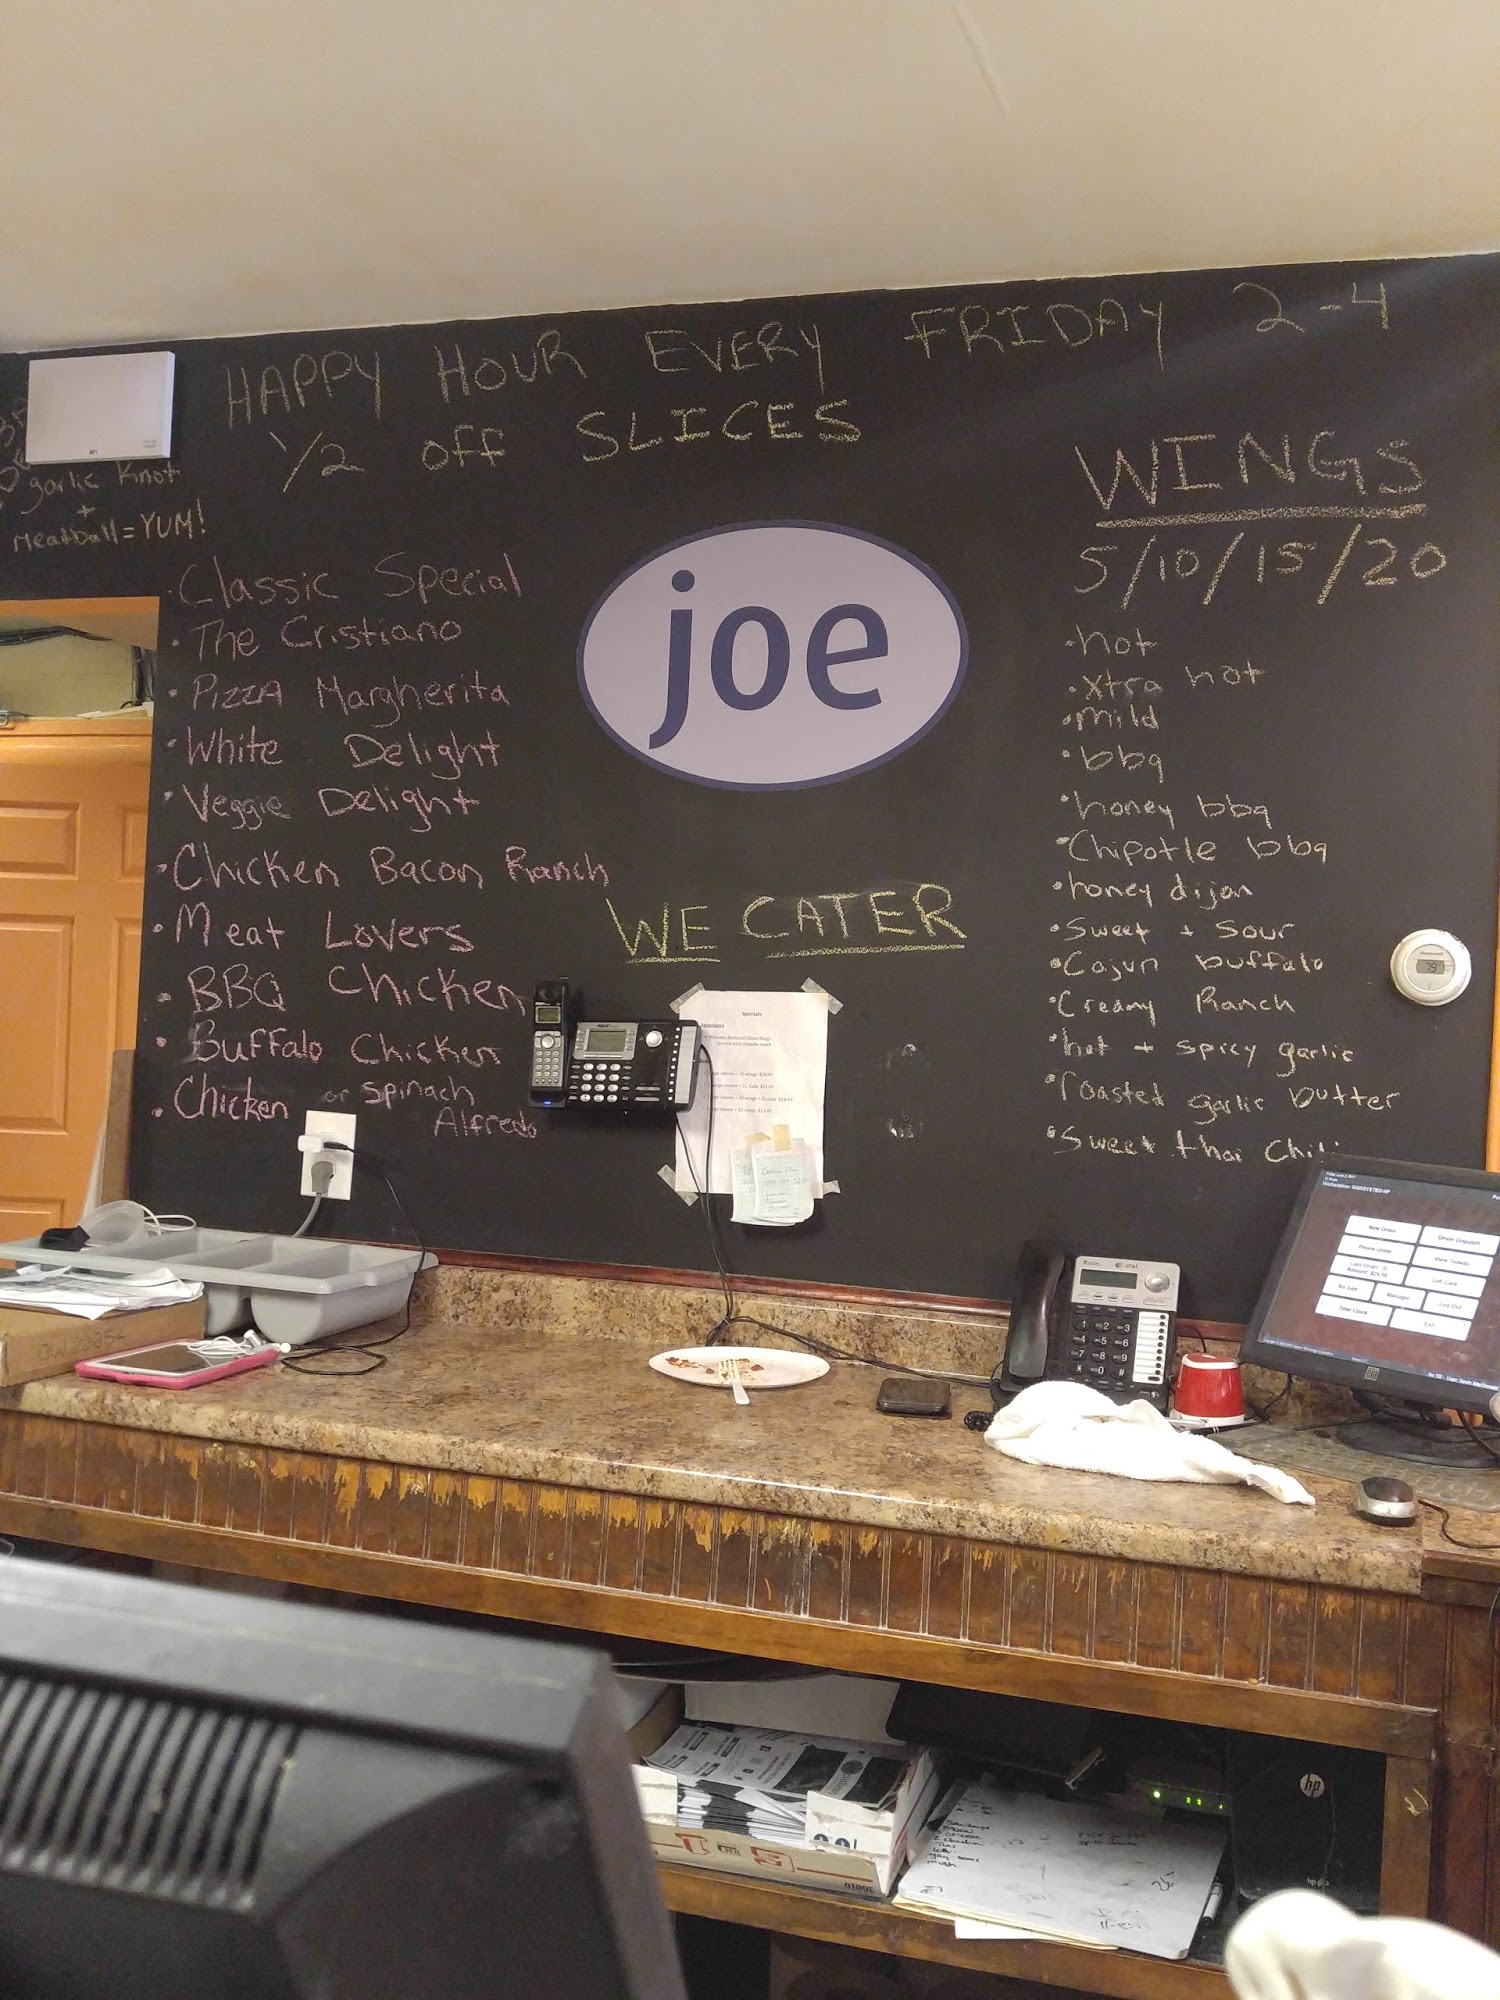 HAPPY HOUR EVERY FRIDAY 2-4
1/2 off SLICES
garlic Knot
+
Meatball = YUM!
• Classic Special
• The Cristiano
• PIZZA Margherita
• White Delight
• Veggie Delight
• Chicken Bacon Ranch
• Meat Lovers
• BBQ Chicken
• Buffalo Chicken
• Chicken or Spinach
Alfredo
joe
WE CATER
WINGS
5/10/15/20
• hot
• xtra hot
• mild
• bbq
• honey bbq
• Chipotle bbq
• honey dijon
• Sweet + Sour
• Cajun buffalo
• Creamy Ranch
• hot + spicy garlic
• roasted garlic butter
• Sweet thai Chili
Specials
Honeywell
79
at&t
New Order
Driver Dispatch
Phone Order
View Tickets
Gift Card
No Sale
Manager
Log Out
Time Clock
Exit
hp